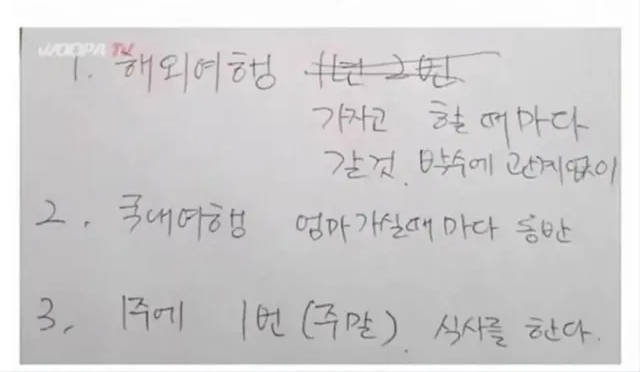 WOOPA TV
1. 해외여행 1년 2번
가자고 할때마다
갈것. 박수에 관계없이
2. 국내여행 엄마가실때마다 동반
3. 1주에 1번 (주말). 식사를 한다.